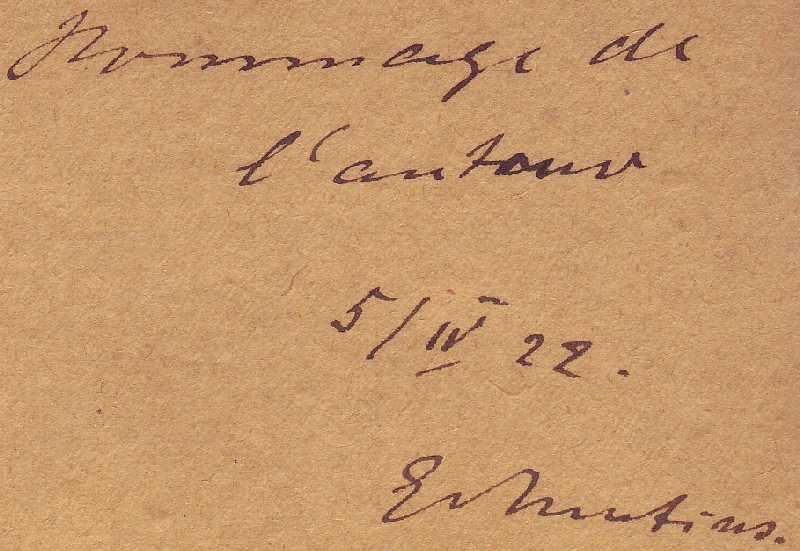 Hommage de
l'auteur
5/IV 22.